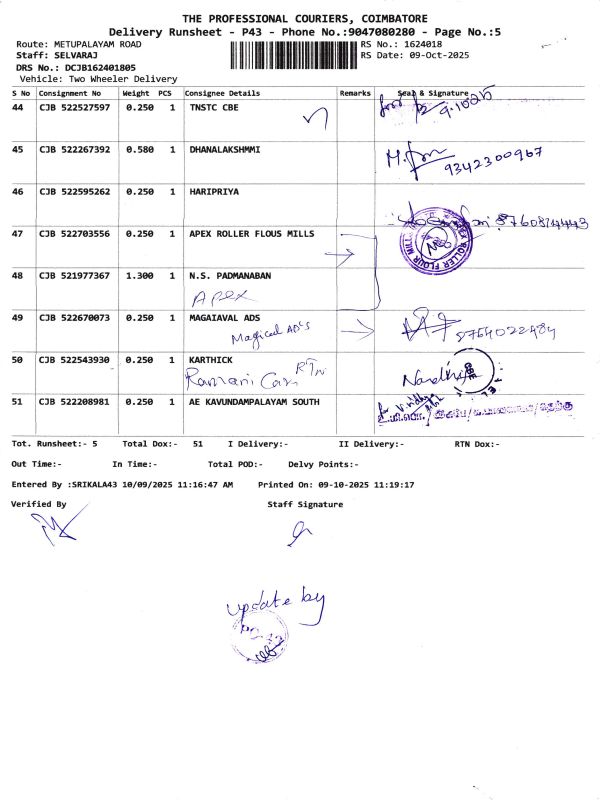 THE PROFESSIONAL COURIERS, COIMBATORE
Delivery Runsheet - P43 - Phone No.:9047080280 - Page No.:5
Route: METUPALAYAM ROAD RS No.: 1624018
Staff: SELVARAJ RS Date: 09-Oct-2025
DRS No.: DCJB162401805
Vehicle: Two Wheeler Delivery
S No Consignment No Weight PCS Consignee Details Remarks Seal & Signature
44 CJB 522527597 0.250 1 TNSTC CBE
45 CJB 522267392 0.580 1 DHANALAKSHMMI
9342300967
46 CJB 522595262 0.250 1 HARIPRIYA
47 CJB 522703556 0.250 1 APEX ROLLER FLOUS MILLS
48 CJB 521977367 1.300 1 N.S. PADMANABAN
Apex
49 CJB 522670073 0.250 1 MAGAIAVAL ADS
Magical AD's 8764022484
50 CJB 522543930 0.250 1 KARTHICK
RTN
Ramani Nandhiya
51 CJB 522208981 0.250 1 AE KAVUNDAMPALAYAM SOUTH
Tot. Runsheet:- 5 Total Dox:- 51 I Delivery:- II Delivery:- RTN Dox:-
Out Time:- In Time:- Total POD:- Delvy Points:-
Entered By :SRIKALA43 10/09/2025 11:16:47 AM Printed On: 09-10-2025 11:19:17
Verified By Staff Signature
update by